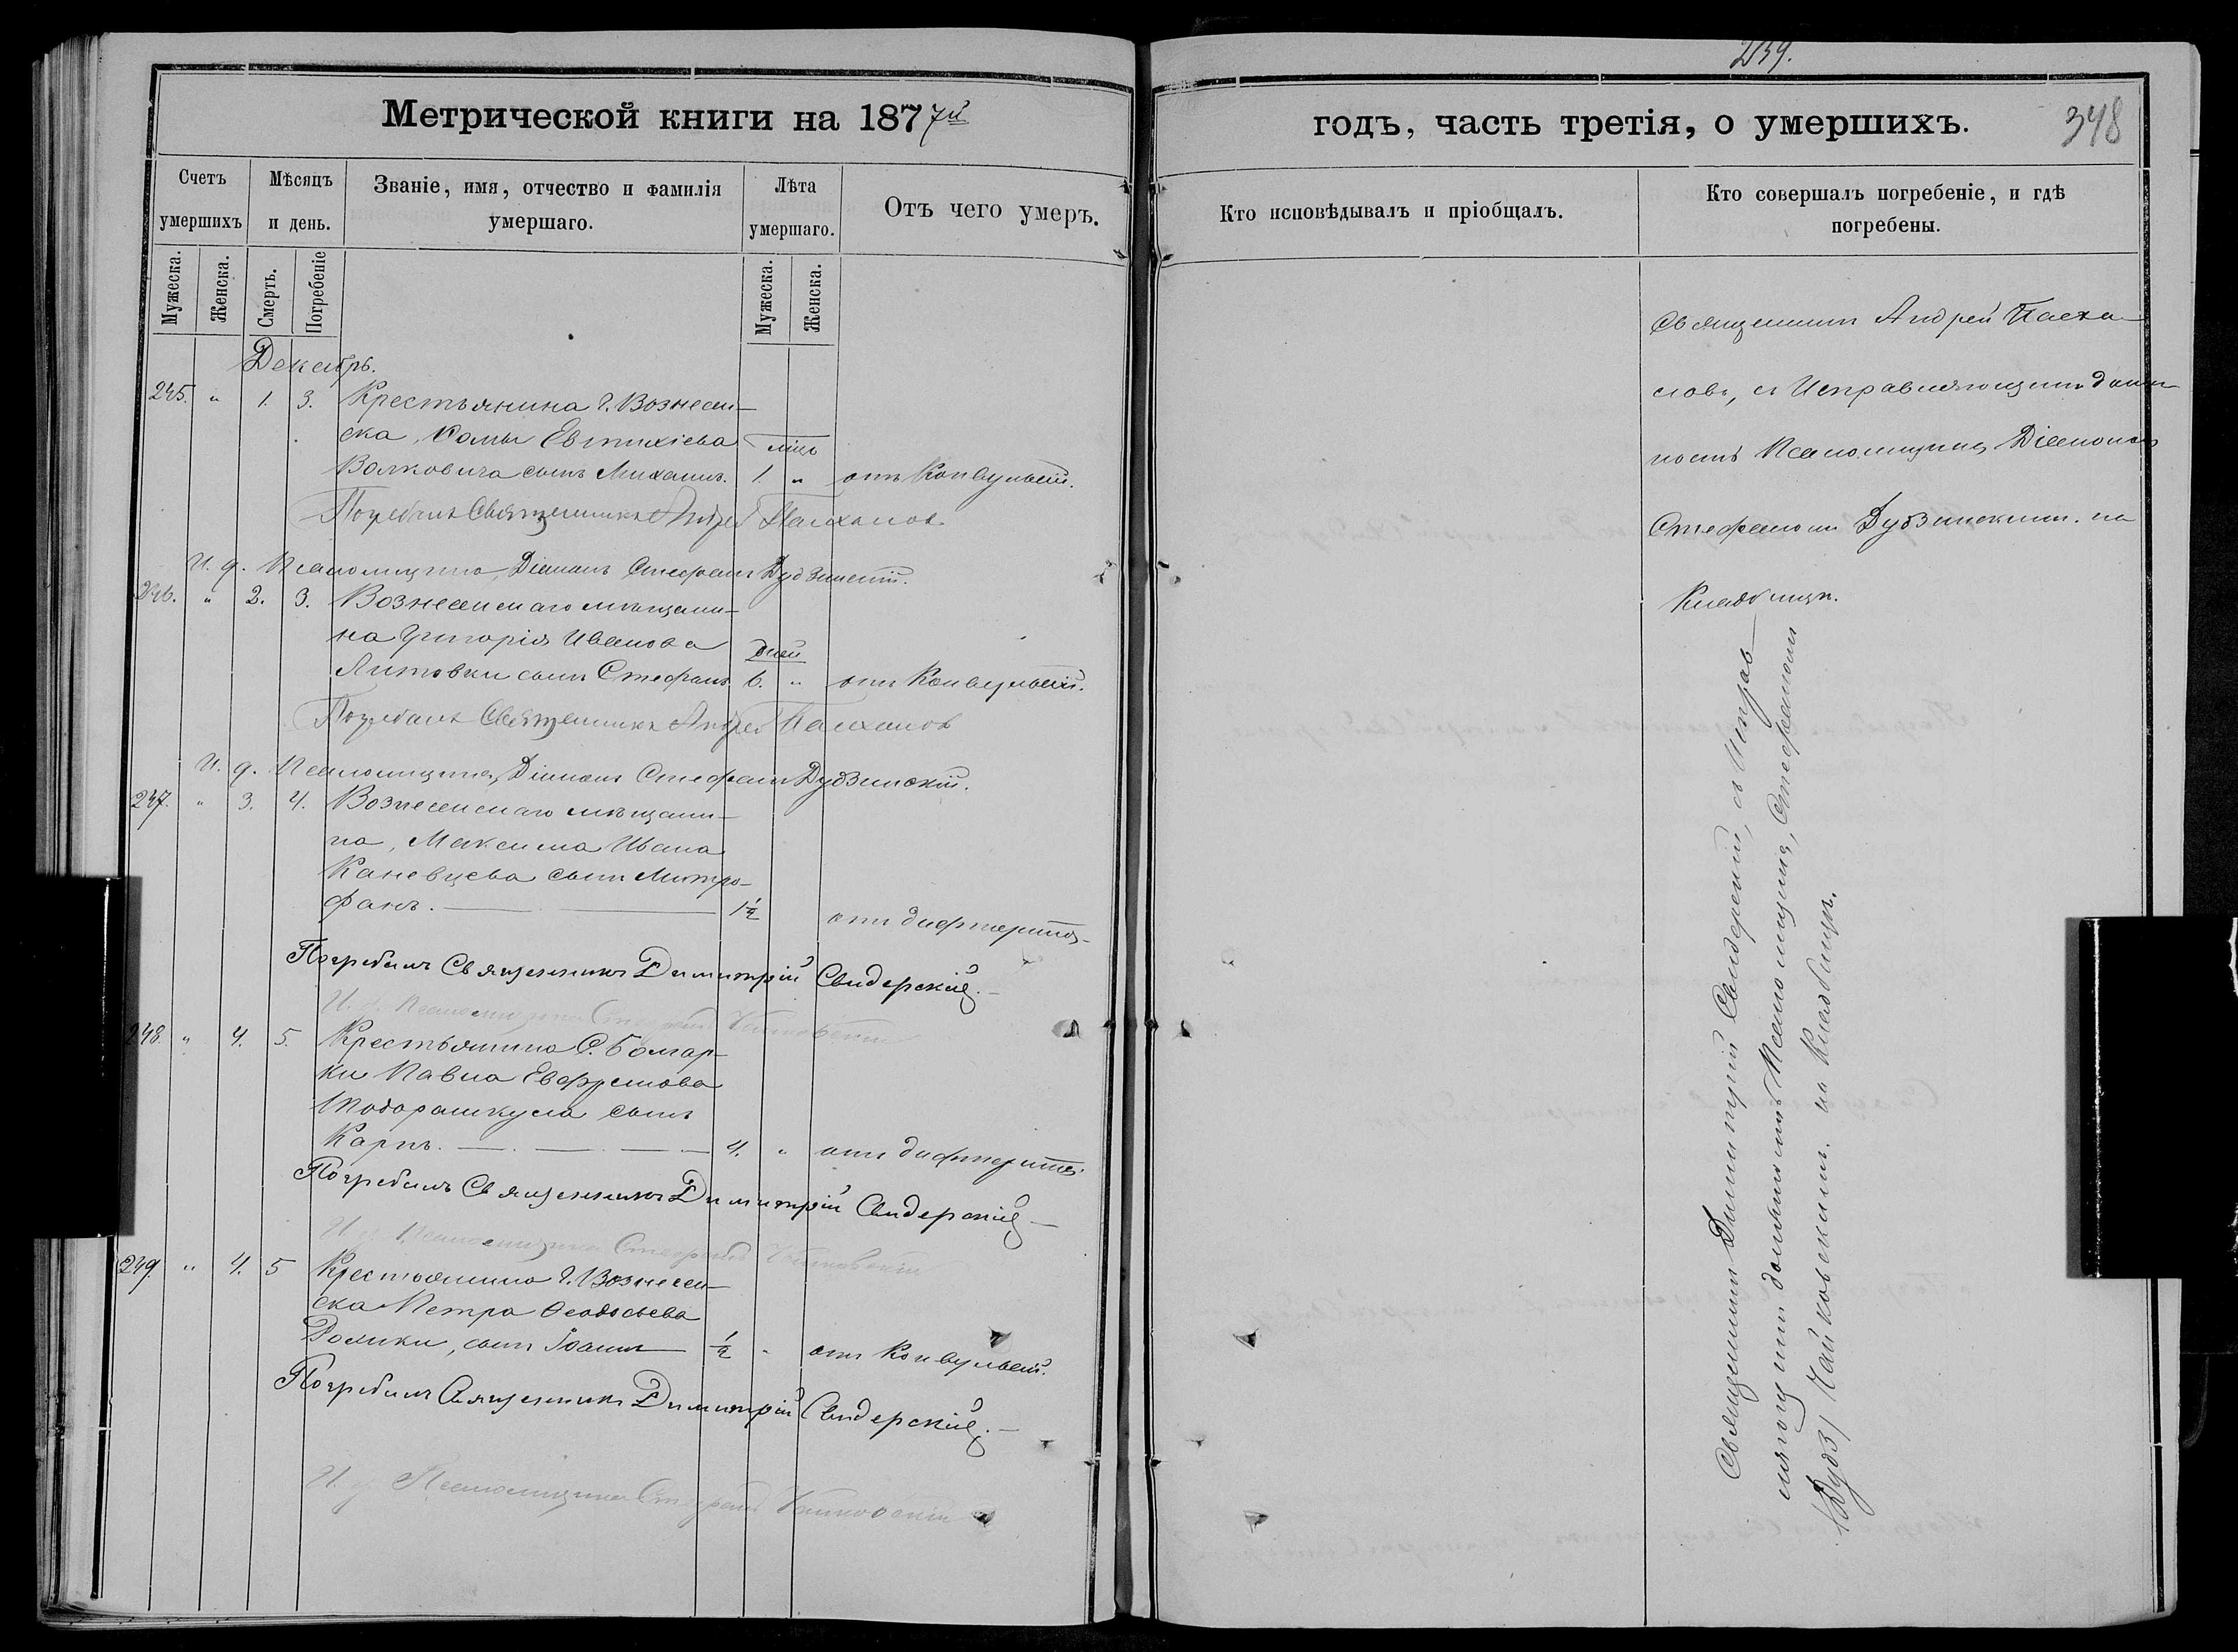 Метрической книги на 1877й
Счетъ умершихъ
Мѣсяцъ и день.
Званіе, имя, отчество и фамилія умершаго.
Лѣта умершаго.
Отъ чего умеръ.
Мужеска.
Женска.
Смерть.
Погребеніе
Мужеска.
Женска.
Декабрь.
245. " 1. 3. Крестьянина г. Вознесен-
ска, Фомы Евтихіева лѣто
Волковича сынъ Михаилъ. 1. " отъ Конвульсій.
Погребалъ Священникъ Андрей Пасхаловъ
И. д. Псаломщика, Діаконъ Стефанъ Дудзинскій.
246. " 2. 3. Вознесенскаго мѣщани-
на Григорія Иванова дней
Литовки сынъ Стефанъ 6. " отъ Конвульсій.
Погребалъ Священникъ Андрей Пасхаловъ
И. д. Псаломщика, Діаконъ Стефанъ Дудзинскій.
247. " 3. 4. Вознесенскаго мѣщани-
на, Максима Ивана
Каневцева сынъ Митро-
фанъ. 1½ отъ дифтерита.
Погребалъ Священникъ Димитрій Свидерскій.
И. д. Псаломщика Стефанъ
248. " 4. 5. Крестьянина С. Болгар-
ки Павла Евфремова
сынъ
Карпъ. 4. " отъ дифтерита.
Погребалъ Священникъ Димитрій Свидерскій
И. д. Псаломщика Стефанъ
249. " 4. 5 Крестьянина г. Вознесен-
ска Петра Ѳеодосьева
сынъ Іоаннъ ½ " отъ Конвульсій.
Погребалъ Священникъ Димитрій Свидерскій.
И. д. Псаломщика Стефанъ
259.
годъ, часть третія, о умершихъ.
348
Кто исповѣдывалъ и пріобщалъ.
Кто совершалъ погребеніе, и гдѣ погребены.
Священникъ Андрей Пасха-
ловъ, съ Исправляющимъ долж-
ность Псаломщика, Діаконъ
Стефаномъ Дудзинскимъ. на
Кладбищѣ.
Священникъ Димитрій Свидерскій, съ Исправ-
ляющимъ должность Псаломщика, Стефаномъ
/Дудз/ Чайковскимъ. на Кладбищѣ.